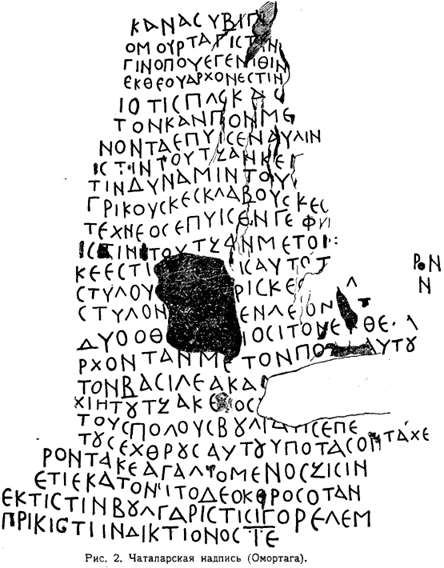 ΚΑΝΑCΥΒΙΓΙ
ΟΜΟΥΡΤΑΓΙCΤΙΝ
ΓΙΝΟΠΟΥΕΓΕΝΙΘΙΝ
ΕΚΘΕΟΥΑΡΧΟΝΕCΤΙΝ
ΙΟΤΙCΠΛCΚΑC
ΤΟΝΚΑΝΠΟΝΜΕ
ΝΟΝΤΑΕΠΥΙCΕΝΑΥΛΙΝ
ΙCΤΙΝΤΟΥΤΖΑΝΚΕΓ
ΤΙΝΔΥΝΑΜΙΝΤΟΥ
ΓΡΙΚΟΥCΚΕCΚΛΑΒΟΥCΚΕC
ΤΕΧΝΕΟCΕΠΥΙCΕΝΓΕΦΙ
ΙCΤΙΝΤΟΥΤΖΑΝΜΕΤΟΙ:
ΚΕΕCΤΙ ΙCΑΥΤΟΤ ΡΟΝ
CΤΥΛΟΥ ΡΙCΚΕ Ν
CΤΥΛΟΝ ΕΝΛΕΟΝ
ΔΥΟΟΘ ΟCΙΤΟΝ ΘΕ
ΡΧΟΝΤΑΝΜΕΤΟΝΠΟ ΑΥΤΥ
ΤΟΝΒΑCΙΛΕΑΚΑ
ΧΙΗΤΥΤΖΑΚΕ ΟC
ΤΟΥCΠΟΛΟΥCΒΥΛΓΑΡΙCΕΠΕ
ΤΥCΕΧΘΡΥCΑΥΤΟΥΥΠΟΤΑCΟΝΤΑΧΕ
ΡΟΝΤΑΚΕΑΓΑΛΙΟΜΕΝΟCΖΙCΙΝ
ΕΤΙΕΚΑΤΟΝΙΤΟΔΕΟΚΕΡΟCΟΤΑΝ
ΕΚΤΙCΤΙΝΒΟΥΛΓΑΡΙCΤΙCΙΓΟΡΕΛΕΜ
ΠΡΙΚΙCΤΙΙΝΔΙΚΤΙΟΝΟCΤΕ
Рис. 2. Чаталарская надпись (Омортага).